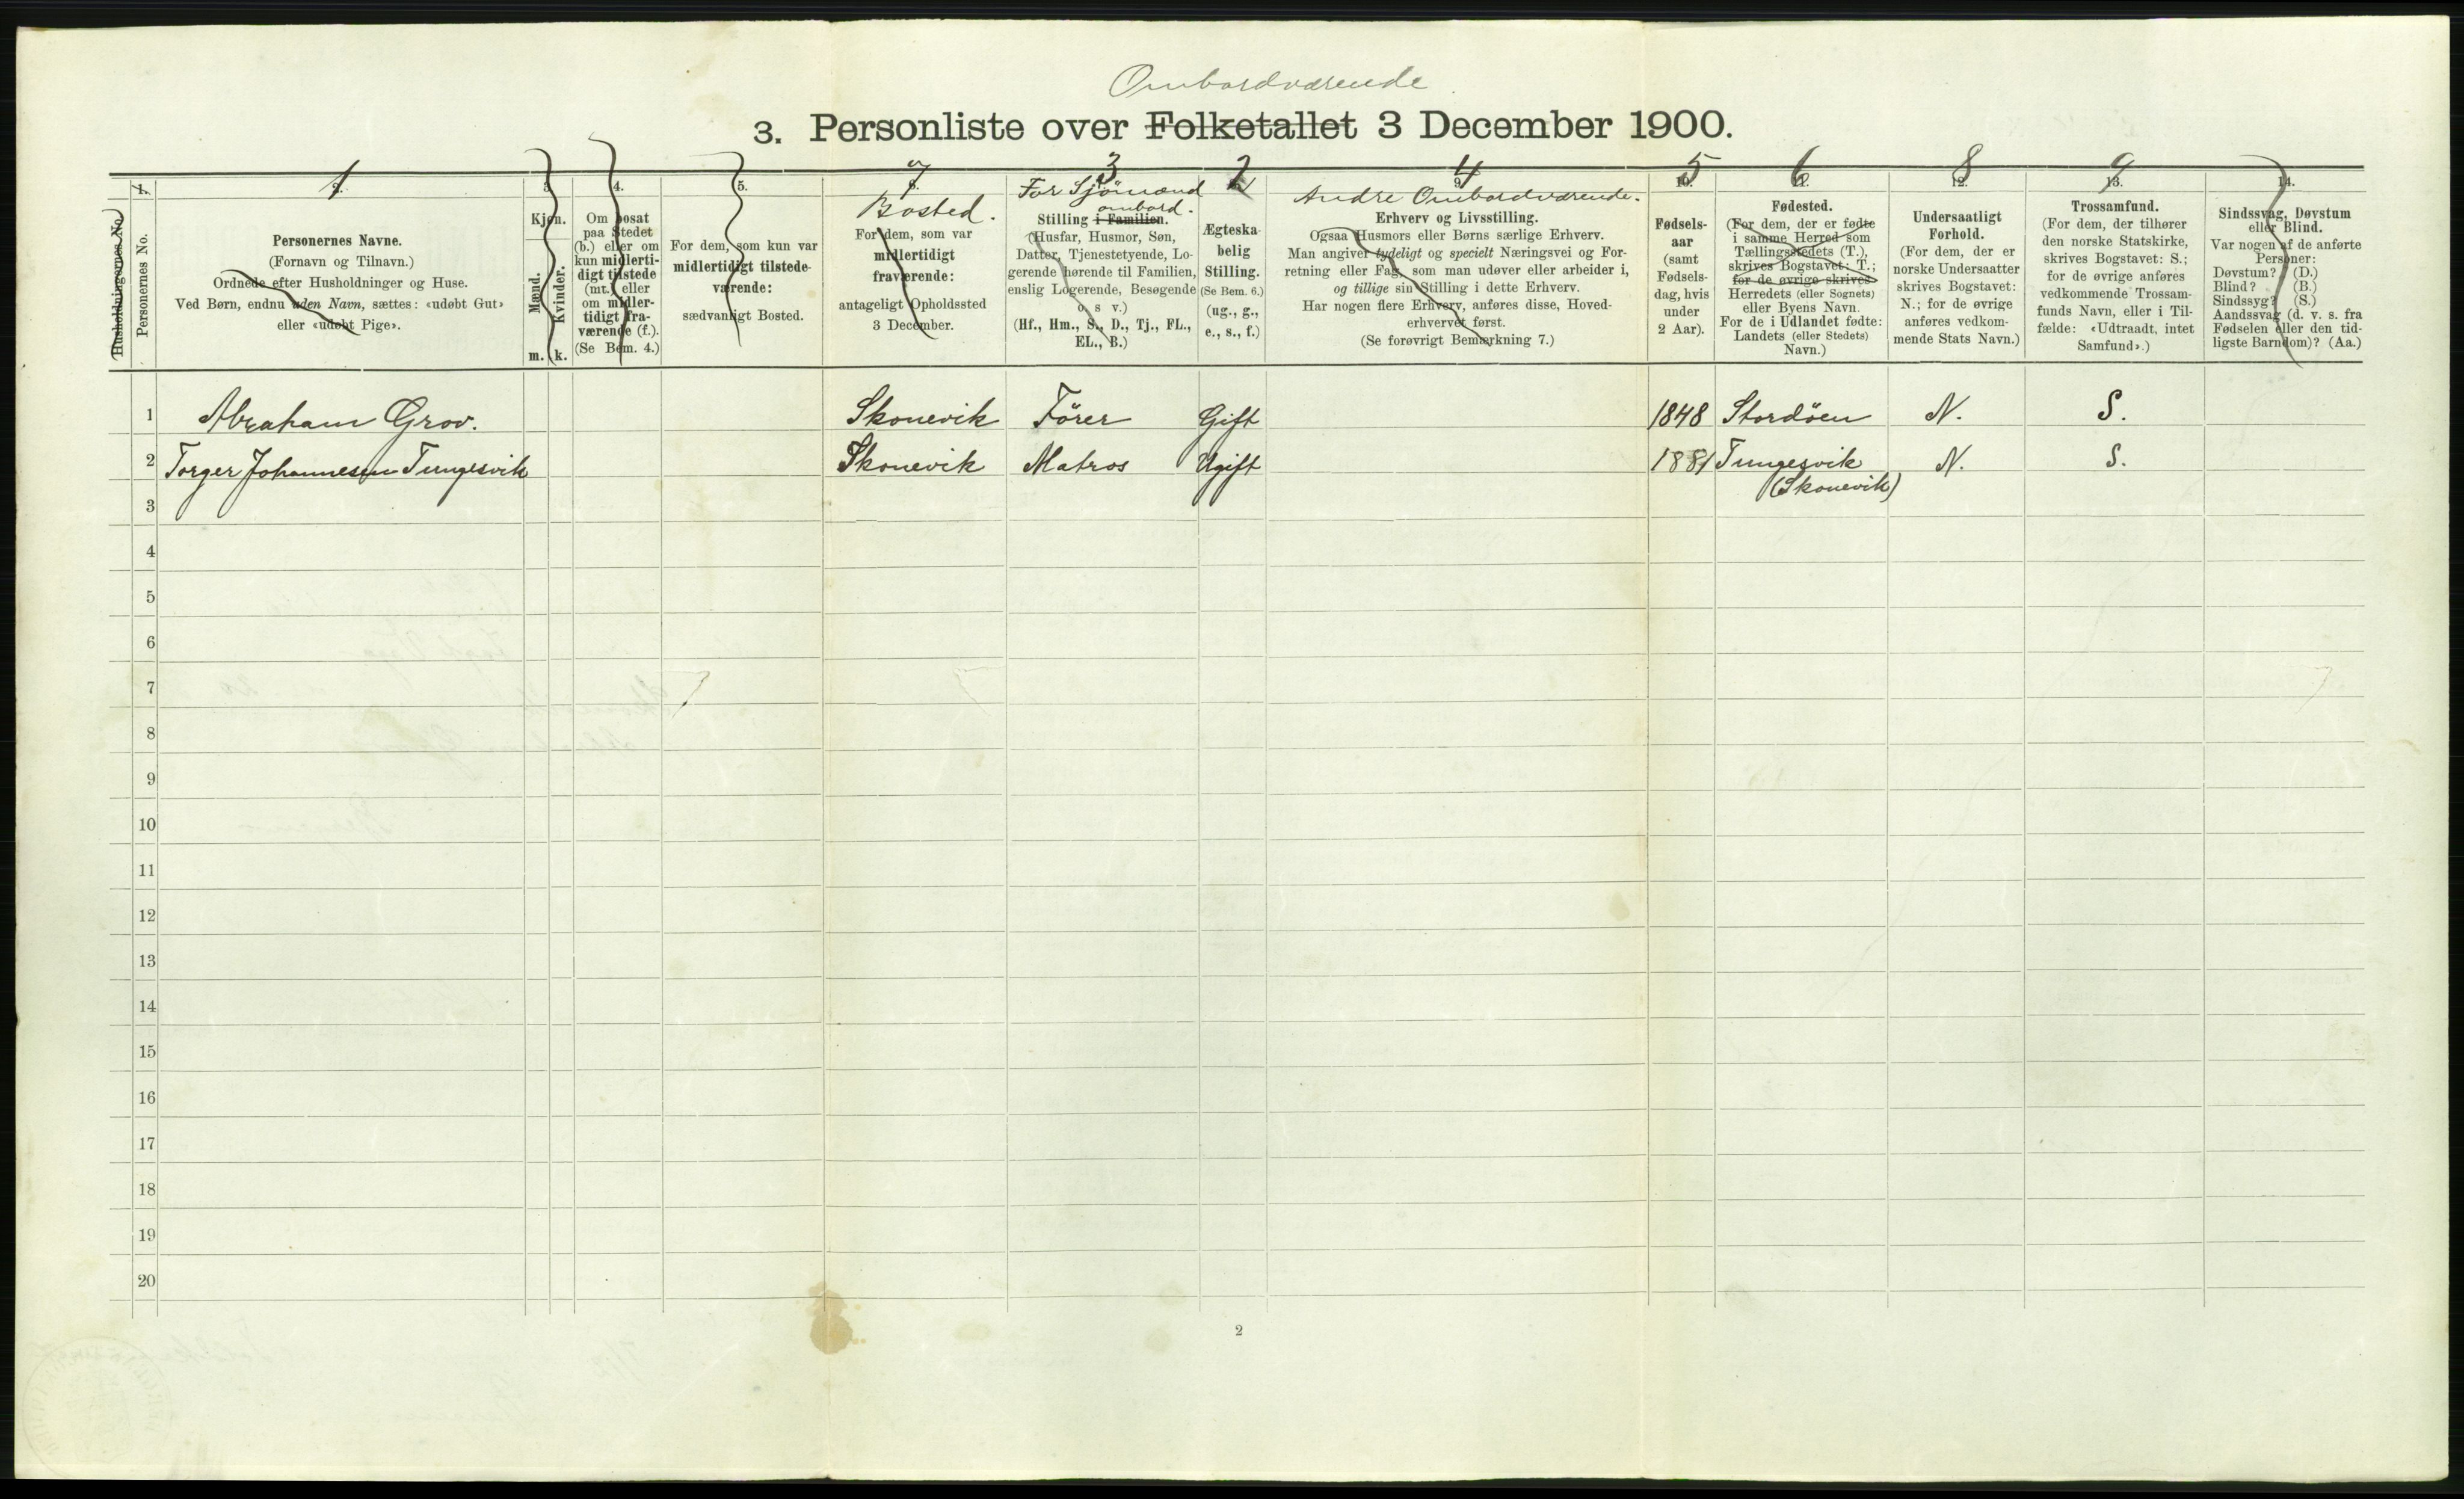 Ombordværende
3. Personliste over Folketallet 3 December 1900.
1 7 3 2 4 5 6 8 9
1. 2. 3. 4. 5. 6. 9. 10. 11. 12. 13. 14.
Husholdningernes No.
Personernes No.
Personernes Navne.
(Fornavn og Tilnavn.)
Ordnede efter Husholdninger og Huse.
Ved Børn, endnu uden Navn, sættes: «udøbt Gut»
eller «udøbt Pige».
Kjøn.
Mænd.
Kvinder.
m. k.
Om bosat
paa Stedet
(b.) eller om
kun midlerti-
digt tilstede
(mt.) eller
om midler-
tidigt fra-
værende (f.).
(Se Bem. 4.)
For dem, som kun var
midlertidigt tilstede-
værende:
sædvanligt Bosted.
Bosted.
For dem, som var
midlertidigt
fraværende:
antageligt Opholdssted
3 December.
For Sjömænd
ombord.
Stilling i Familien.
(Husfar, Husmor, Søn,
Datter, Tjenestetyende, Lo-
gerende hørende til Familien,
enslig Logerende, Besøgende
o. s. v.)
(Hf., Hm., S., D., Tj., FL.,
EL., B.)
Ægteska-
belig
Stilling.
(Se Bem. 6.)
(ug., g.,
e., s., f.)
Andre Ombordværende.
Erhverv og Livsstilling.
Ogsaa Husmors eller Børns særlige Erhverv.
Man angiver tydeligt og specielt Næringsvei og For-
retning eller Fag, som man udøver eller arbeider i,
og tillige sin Stilling i dette Erhverv.
Har nogen flere Erhverv, anføres disse, Hoved-
erhvervet først.
(Se forøvrigt Bemærkning 7.)
Fødsels-
aar
(samt
Fødsels-
dag, hvis
under
2 Aar).
Fødested.
(For dem, der er fødte
i samme Herred som
Tællingsstedets (T.),
skrives Bogstavet: T.;
for de øvrige skrives
Herredets (eller Sognets)
eller Byens Navn.
For de i Udlandet fødte:
Landets (eller Stedets)
Navn.)
Undersaatligt
Forhold.
(For dem, der er
norske Undersaatter
skrives Bogstavet:
N.; for de øvrige
anføres vedkom-
mende Stats Navn.)
Trossamfund.
(For dem, der tilhører
den norske Statskirke,
skrives Bogstavet: S.;
for de øvrige anføres
vedkommende Trossam-
funds Navn, eller i Til-
fælde: «Udtraadt, intet
Samfund».)
Sindssvag, Døvstum
eller Blind.
Var nogen af de anførte
Personer:
Døvstum? (D.)
Blind? (B.)
Sindssyg? (S.)
Aandssvag (d. v. s. fra
Fødselen eller den tid-
ligste Barndom)? (Aa.)
1 Abraham Grov. Skonevik Förer Gift 1848 Stordöen N. S.
2 Torger Johannesen Tungesvik Skonevik Matros Ugift 1881 Tungesvik N. S.
(Skonevik)
3
4
5
6
7
8
9
10
11
12
13
14
15
16
17
18
19
20
2